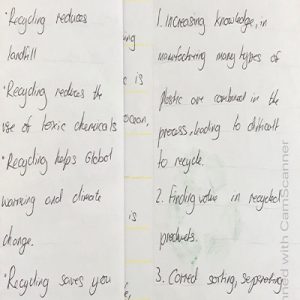 • Recycling reduces
landfill
• Recycling reduces the
use of toxic chemicals
• Recycling helps Global
warming and climate
change.
• Recycling saves you
is
ocean,
is
1. Increasing knowledge, in
manufacturing many types of
Plastic are combined in the
process, leading to difficult
to recycle.
2. Finding value in recycled
products.
3. Correct sorting, seperating
ned with CamScanner